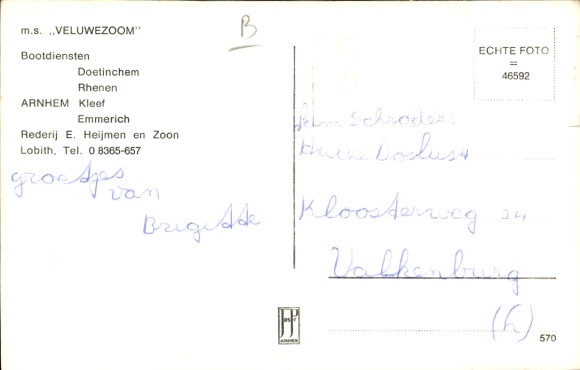 m.s. „VELUWEZOOM”
Bootdiensten
Doetinchem
Rhenen
ARNHEM Kleef
Emmerich
Rederij E. Heijmen en Zoon
Lobith, Tel. 0 8365-657
groetjes
van
Brigitte
B
ECHTE FOTO
=
46592
Schröder
Kloosterweg 34
Valkenburg
(L)
ARNHEM
570